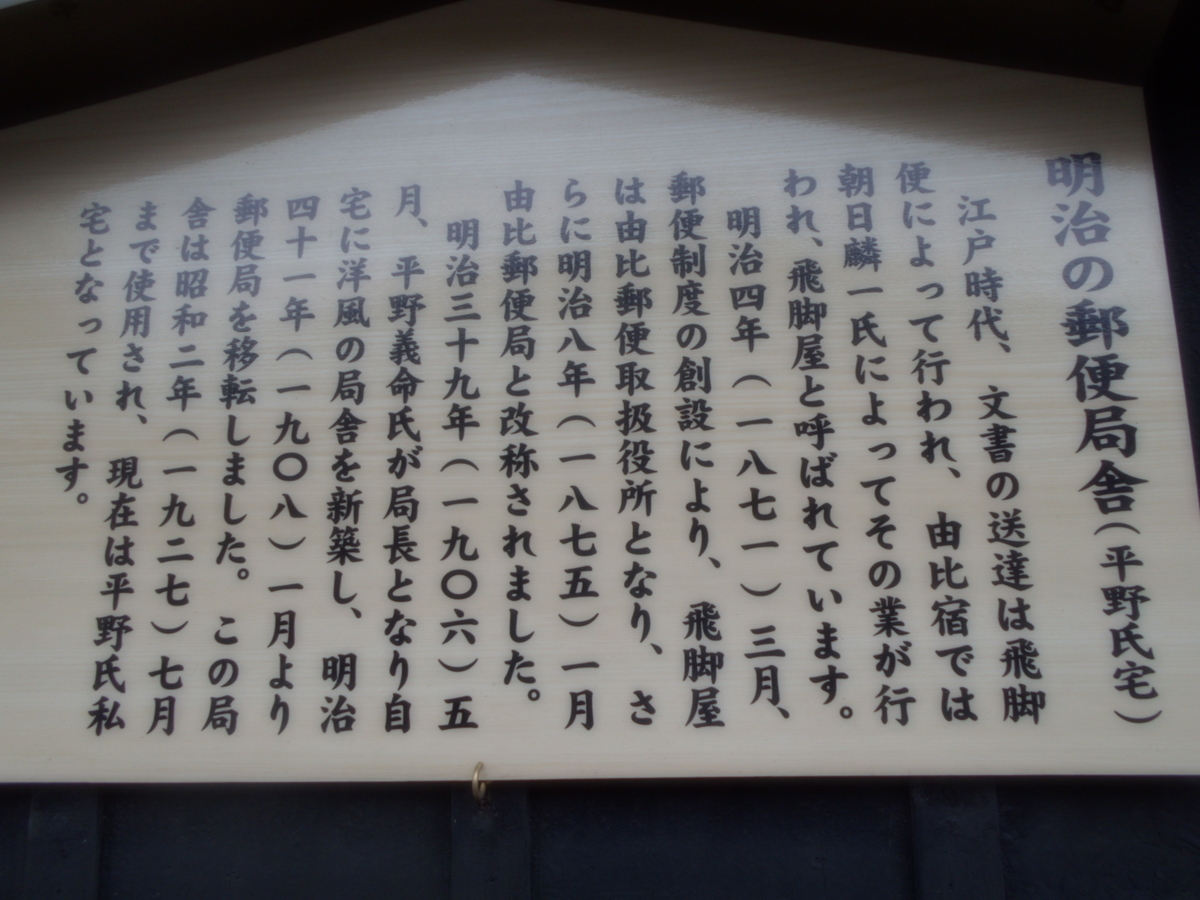 明治の郵便局舎(平野氏宅)
江戸時代、文書の送達は飛脚
便によって行われ、由比宿では
朝日麟一氏によってその業が行
われ、飛脚屋と呼ばれています。
明治四年(一八七一)三月、
郵便制度の創設により、飛脚屋
は由比郵便取扱役所となり、さ
らに明治八年(一八七五)一月
由比郵便局と改称されました。
明治三十九年(一九〇六)五
月、平野義命氏が局長となり自
宅に洋風の局舎を新築し、明治
四十一年(一九〇八)一月より
郵便局を移転しました。この局
舎は昭和二年(一九二七)七月
まで使用され、現在は平野氏私
宅となっています。